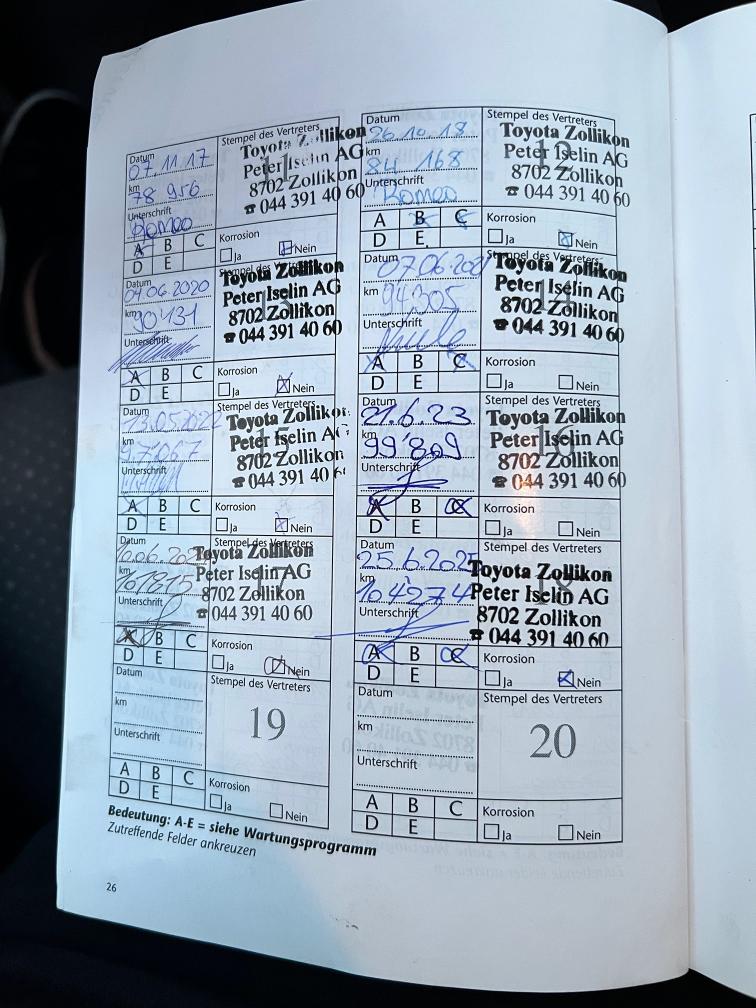 Datum
07.11.17
km
78 956
Unterschrift
Romeo
Stempel des Vertreters
11
Toyota Zollikon
Peter Iselin AG
8702 Zollikon
☎ 044 391 40 60
A B C
D E
Korrosion
Ja Nein
Datum
26.10.18
km
84 168
Unterschrift
Romeo
Stempel des Vertreters
12
Toyota Zollikon
Peter Iselin AG
8702 Zollikon
☎ 044 391 40 60
A B C
D E
Korrosion
Ja Nein
Datum
04.06.2020
km
90'131
Unterschrift
Stempel des Vertreters
13
Toyota Zollikon
Peter Iselin AG
8702 Zollikon
☎ 044 391 40 60
A B C
D E
Korrosion
Ja Nein
Datum
07.06.2021
km
94'305
Unterschrift
Stempel des Vertreters
14
Toyota Zollikon
Peter Iselin AG
8702 Zollikon
☎ 044 391 40 60
A B C
D E
Korrosion
Ja Nein
Datum
13.05.2022
km
97'267
Unterschrift
Stempel des Vertreters
15
Toyota Zollikon
Peter Iselin AG
8702 Zollikon
☎ 044 391 40 60
A B C
D E
Korrosion
Ja Nein
Datum
21.6.23
km
99'809
Unterschrift
Stempel des Vertreters
16
Toyota Zollikon
Peter Iselin AG
8702 Zollikon
☎ 044 391 40 60
A B C
D E
Korrosion
Ja Nein
Datum
km
101815
Unterschrift
Stempel des Vertreters
17
Toyota Zollikon
Peter Iselin AG
8702 Zollikon
☎ 044 391 40 60
A B C
D E
Korrosion
Ja Nein
Datum
25.6.2025
km
104'274
Unterschrift
Stempel des Vertreters
18
Toyota Zollikon
Peter Iselin AG
8702 Zollikon
☎ 044 391 40 60
A B C
D E
Korrosion
Ja Nein
Datum
km
Unterschrift
Stempel des Vertreters
19
A B C
D E
Korrosion
Ja Nein
Datum
km
Unterschrift
Stempel des Vertreters
20
A B C
D E
Korrosion
Ja Nein
Bedeutung: A-E = siehe Wartungsprogramm
Zutreffende Felder ankreuzen
26